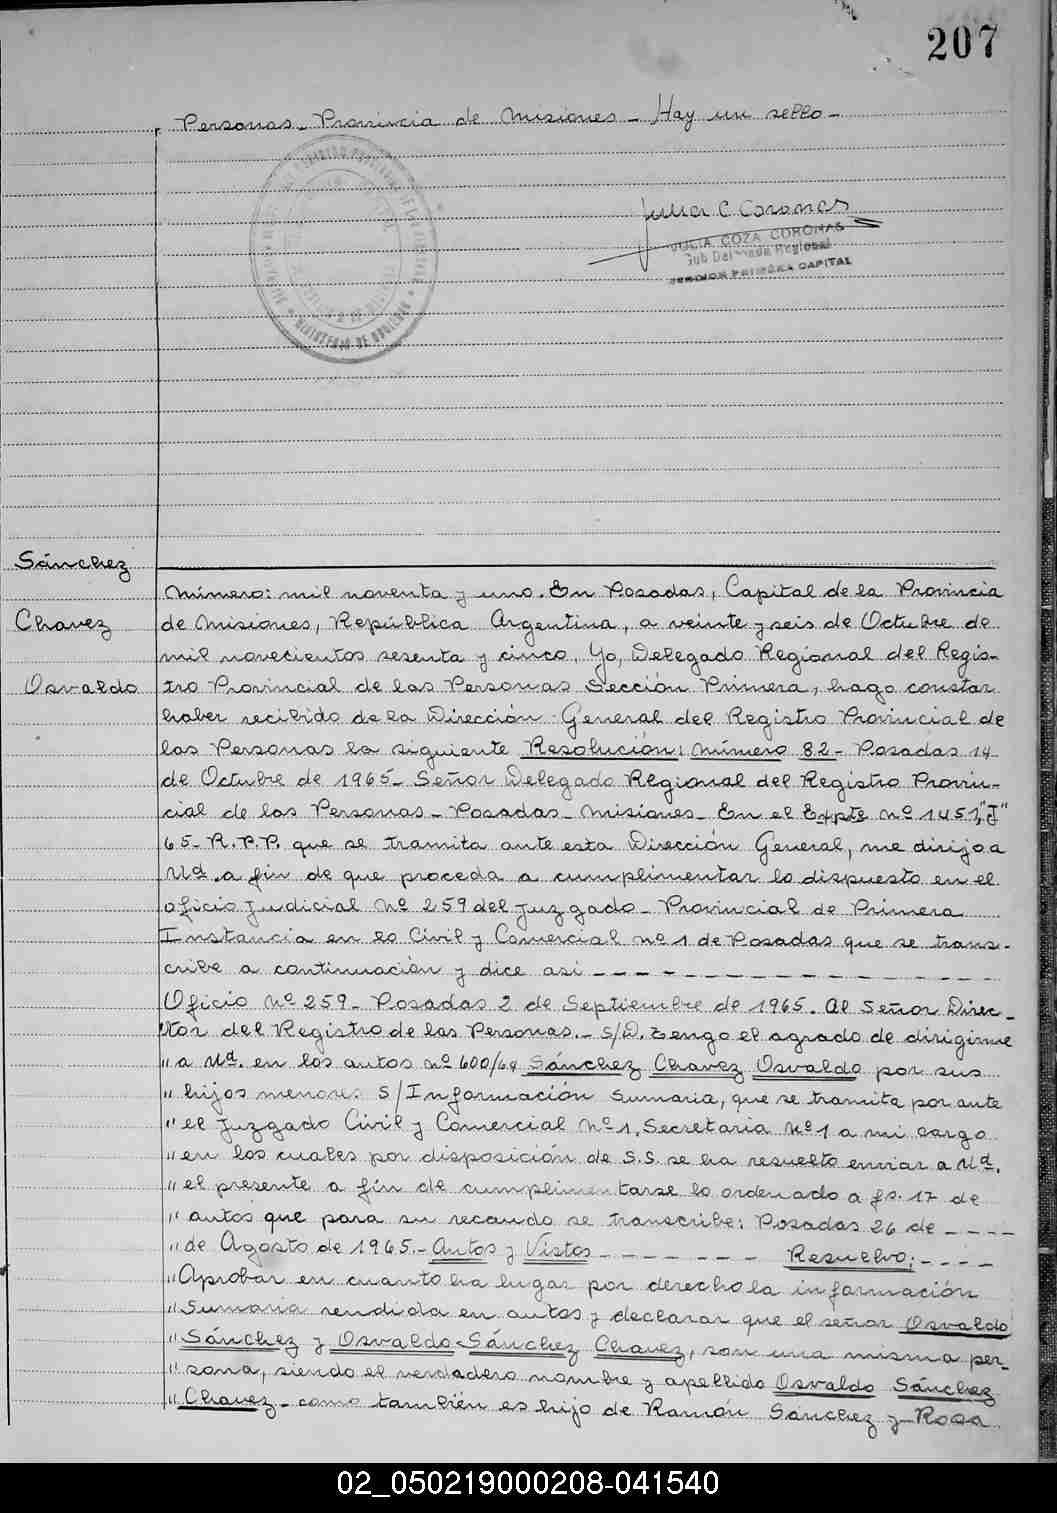 207
Personas_ Provincia de Misiones _ Hay un sello _
Julia C Coronas
JULIA COZA CORONAS
Sub Delegada Regional
SECCION PRIMERA CAPITAL
MINISTERIO DE GOBIERNO
Sánchez
Chavez
Osvaldo
Número: mil noventa y uno. En Posadas, Capital de la Provincia
de Misiones, República Argentina, a veinte y seis de Octubre de
mil novecientos sesenta y cinco, Yo, Delegado Regional del Regis-
tro Provincial de las Personas Sección Primera, hago constar
haber recibido de la Dirección General del Registro Provincial de
las Personas la siguiente Resolución: Número 82 - Posadas 14
de Octubre de 1965_ Señor Delegado Regional del Registro Provin-
cial de las Personas _ Posadas _ Misiones _ En el Expte Nº 1451, "J"
65_ R.P.P. que se tramita ante esta Dirección General, me dirijo a
Ud. a fin de que proceda a cumplimentar lo dispuesto en el
oficio Judicial Nº 259 del Juzgado _ Provincial de Primera
Instancia en lo Civil y Comercial Nº 1 de Posadas que se trans-
cribe a continuación y dice así _ _ _ _ _ _ _ _ _ _ _ _ _
Oficio Nº 259_ Posadas 2 de Septiembre de 1965. Al Señor Direc-
tor del Registro de las Personas._ S/D. Tengo el agrado de dirigirme
" a Ud. en los autos Nº 600/64 Sánchez Chavez Osvaldo por sus
" hijos menores S/Información Sumaria, que se tramita por ante
" el Juzgado Civil y Comercial Nº 1, Secretaria Nº 1 a mi cargo
" en los cuales por disposición de S.S. se ha resuelto enviar a Ud.
" el presente a fin de cumplimentarse lo ordenado a fs. 17 de
" autos que para su recaudo se transcribe: Posadas 26 de _ _ _ _
" de Agosto de 1965._ Autos y Vistos _ _ _ _ _ _ _ Resuelvo: _ _ _ _
" Aprobar en cuanto ha lugar por derecho la información
" Sumaria rendida en autos y declarar que el señor Osvaldo
" Sánchez y Osvaldo Sánchez Chavez, son una misma per-
" sona, siendo el verdadero nombre y apellido Osvaldo Sánchez
" Chavez _ como también es hijo de Ramón Sánchez y Rosa
02_050219000208-041540